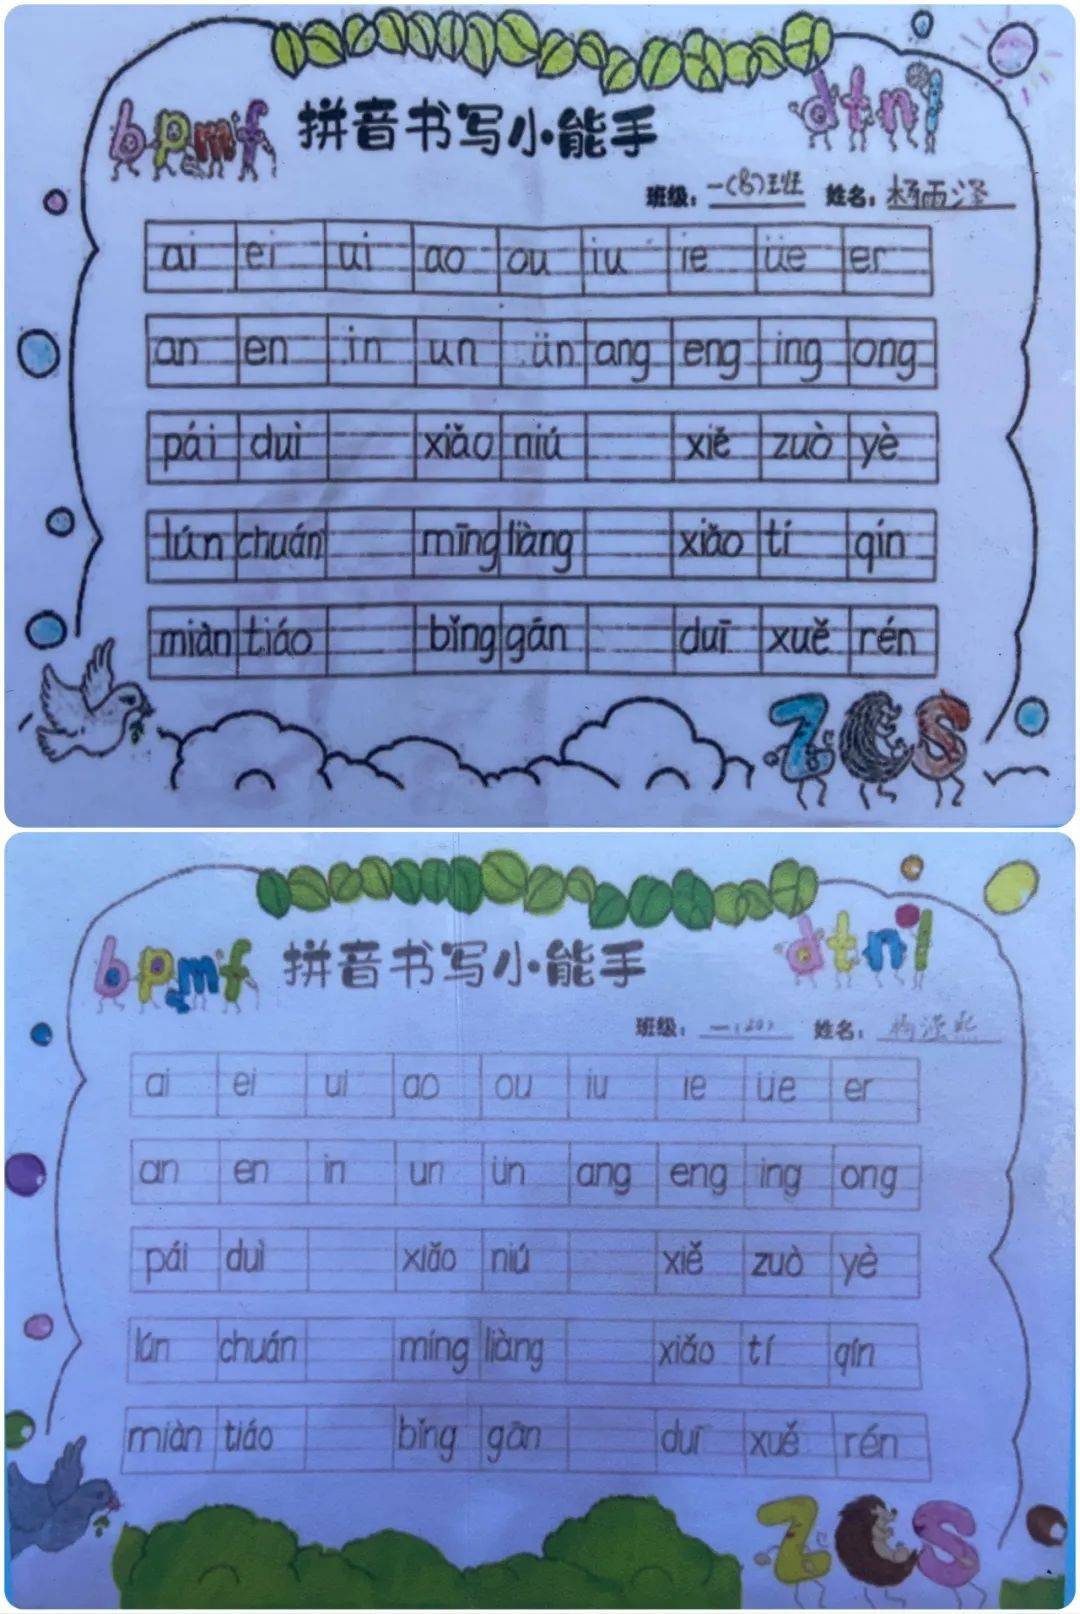 bpmf 拼音书写小能手 dtnl
班级：一(8)班 姓名：杨雨泽
ai ei ui ao ou iu ie üe er
an en in un ün ang eng ing ong
pái duì xiǎo niú xiě zuò yè
lún chuán mīng liàng xiǎo tí qín
miàn tiáo bǐng gān duī xuě rén
zcs
bpmf 拼音书写小能手 dtnl
班级： 姓名：
ai ei ui ao ou iu ie üe er
an en in un ün ang eng ing ong
pái duì xiǎo niú xiě zuò yè
lún chuán míng liàng xiǎo tí qín
miàn tiáo bǐng gān duī xuě rén
zcs